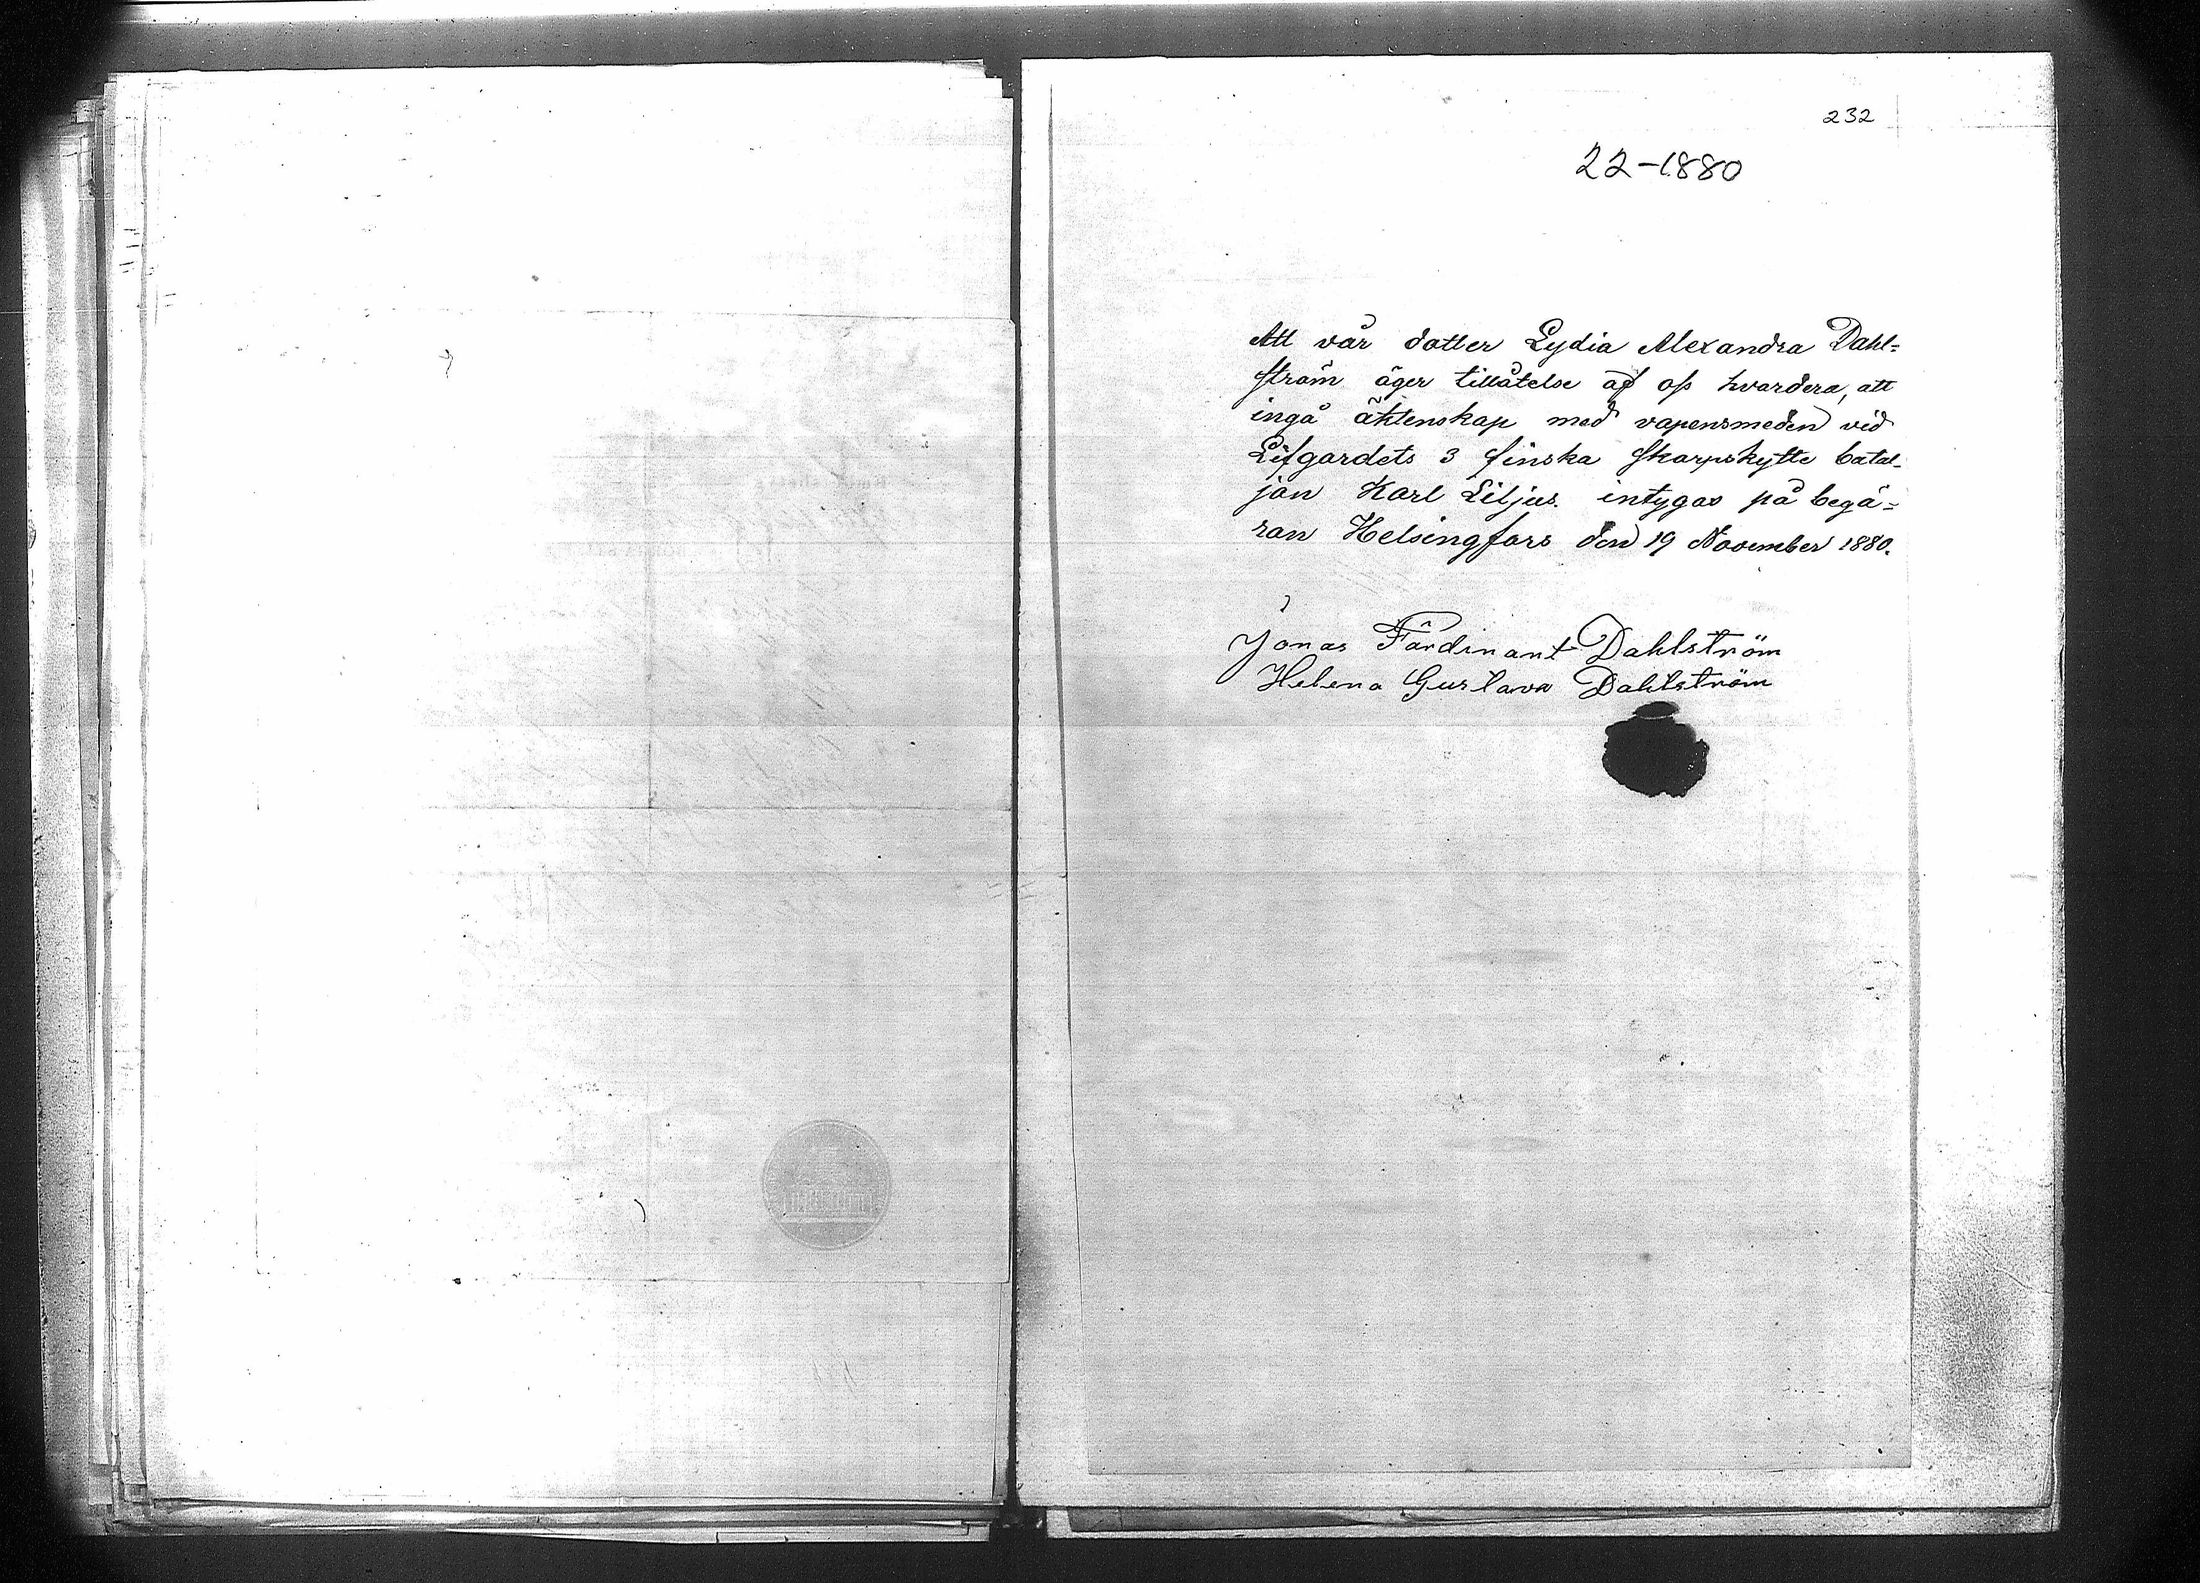 232
22-1880
Att vår dotter Lydia Alexandra Dahl=
ström äger tillåtelse af oss hvardera, att
ingå äktenskap med vapensmeden vid
Lifgardets 3 finska skarpskytte batal-
jon Karl Liljus. intygas på begä=
ran Helsingfors den 19 November 1880.
Jonas Färdinant Dahlström
Helena Gustava Dahlström